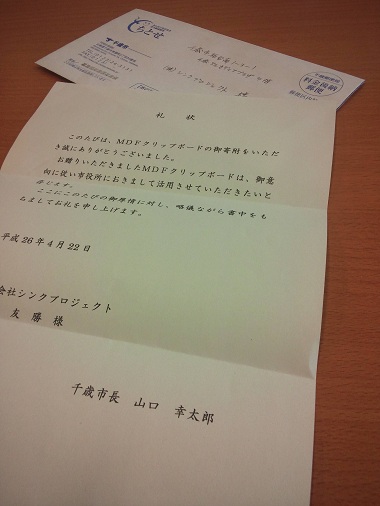 ちとせ
料金後納
郵便
礼 状
このたびは、MDFクリップボードの御寄附をいただ
き誠にありがとうございました。
お贈りいただきましたMDFクリップボードは、御意
向に従い市役所におきまして活用させていただきたいと
存じます。
ここにこのたびの御厚情に対し、略儀ながら書中をも
ちましてお礼を申し上げます。
平成26年4月22日
会社シンクプロジェクト
友 勝 様
千歳市長 山口 幸太郎